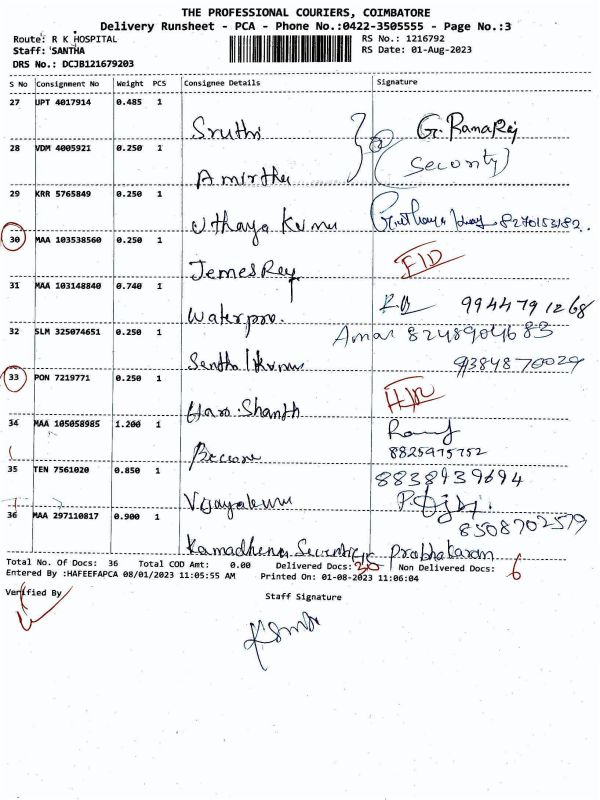 THE PROFESSIONAL COURIERS, COIMBATORE
Delivery Runsheet - PCA - Phone No.:0422-3505555 - Page No.:3
Route: R K HOSPITAL
RS No.: 1216792
Staff: SANTHA
RS Date: 01-Aug-2023
DRS No.: DCJB121679203
S No Consignment No Weight PCS Consignee Details Signature
27 UPT 4017914 0.485 1
Sruthi G. RamaRaj
28 VDM 4005921 0.250 1
Amirtha (Security)
29 KRR 5765849 0.250 1
Uthaya Kumu 8270153182.
30 MAA 103538560 0.250 1
JemesRey
31 MAA 103148840 0.740 1
Waterpro. 9944791268
32 SLM 325074651 0.250 1
Amar 8248904683
9384870029
33 PON 7219771 0.250 1
Hare Shanth
34 MAA 105058985 1.200 1
8825975752
35 TEN 7561020 0.850 1
8838939694
36 MAA 297110817 0.900 1
8508702579
Kamadhenu Prabhakaran
Total No. Of Docs: 36 Total COD Amt: 0.00 Delivered Docs: 30 Non Delivered Docs: 6
Entered By :HAFEEFAPCA 08/01/2023 11:05:55 AM Printed On: 01-08-2023 11:06:04
Verified By
Staff Signature